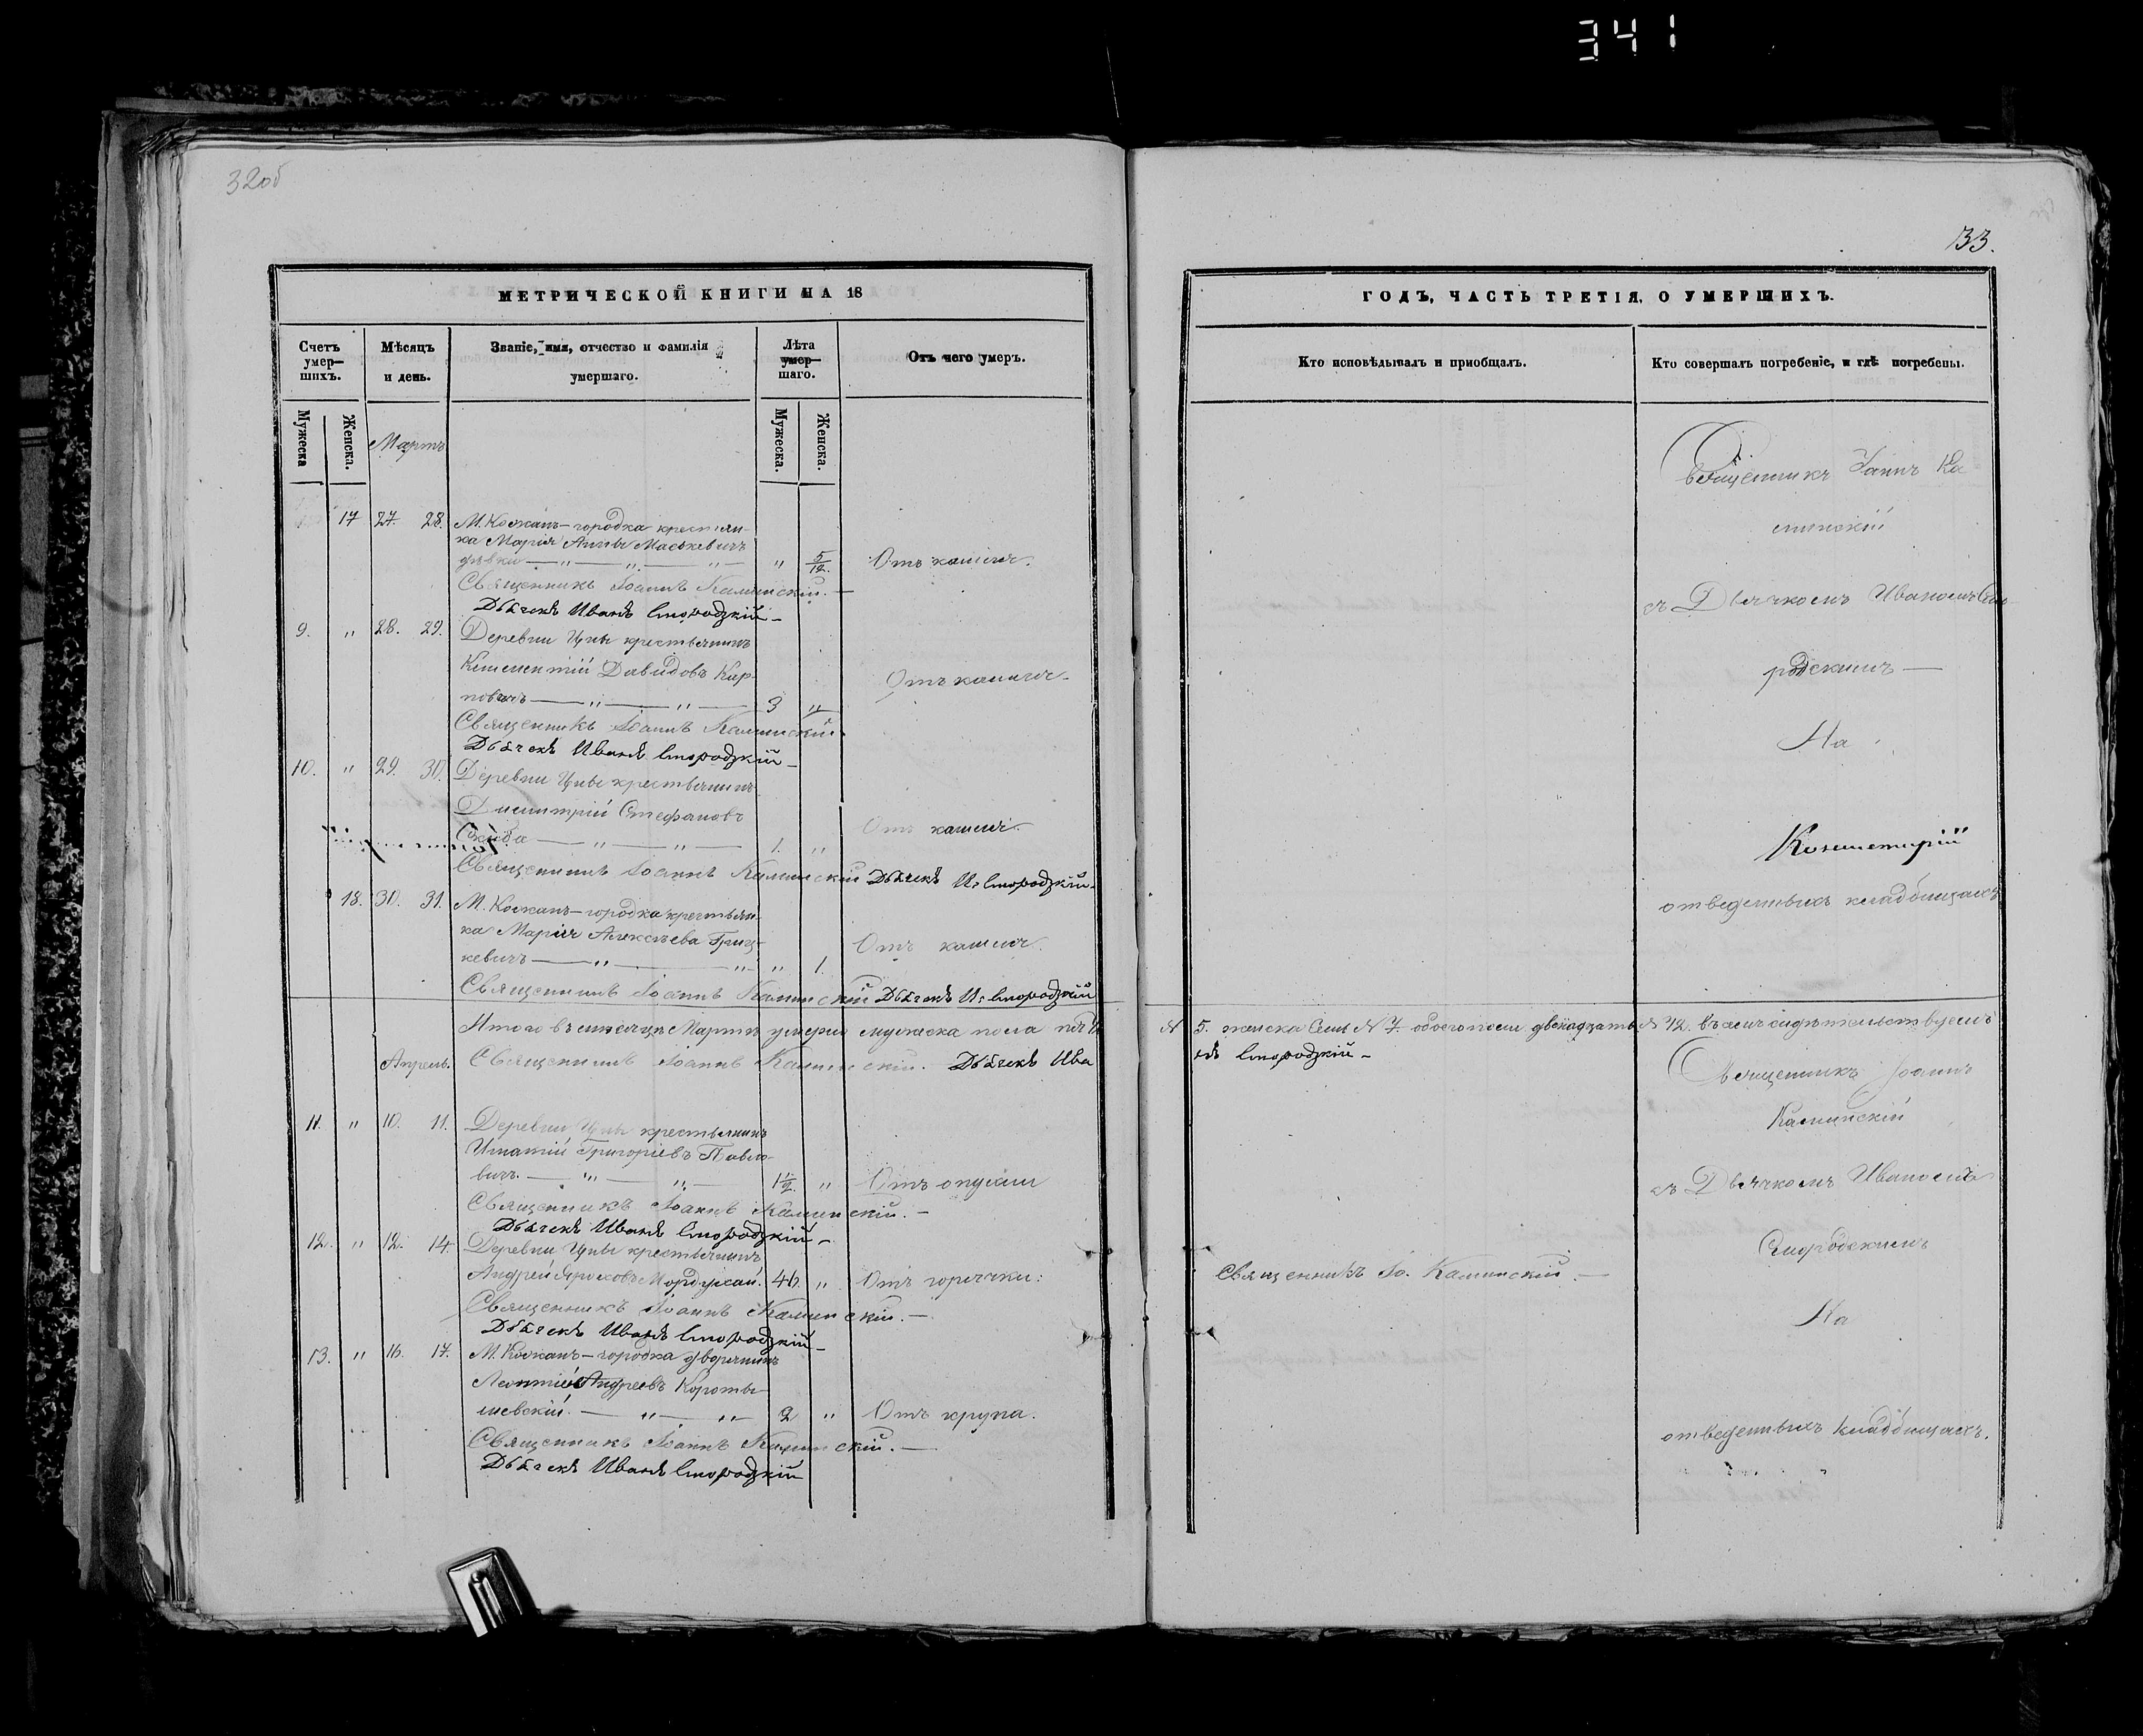 341
32об
33.
МЕТРИЧЕСКОЙ КНИГИ НА 18
Счетъ умер— шихъ.
Мѣсяцъ и день.
Званіе, имя, отчество и фамилія умершаго.
Лѣта умер— шаго.
Отъ чего умеръ.
Мужеска
Женска.
Мужеска.
Женска.
Мартъ
17 27. 28. М. Кожанъ-городка крестьян-
ка Марія Анны Маськевичъ
дѣвки — „ — „ — „ — „ 5/12. Отъ кашля.
Священникъ Іоаннъ Каминскій. —
Дьячекъ Иванъ Смородзкій —
9. „ 28. 29. Деревни Цны крестьянинъ
Климентій Давидовъ Кар-
повичъ — „ — „ — 3 „ Отъ кашля.
Священникъ Іоаннъ Каминскій.
Дьячекъ Иванъ Смородзкій —
10. „ 29. 30. Деревни Цны крестьянинъ
Димитрій Стефановъ
— „ — „ — 1. „ Отъ кашля.
Священникъ Іоаннъ Каминскій Дьячекъ И. Смородзкій.
„ 18. 30. 31. М. Кожанъ-городка крестьян-
ка Марія Алексѣева Гриц-
кевичъ — „ — „ „ 1. Отъ кашля.
Священникъ Іоаннъ Каминскій Дьячекъ И. Смородзкій
Итого въ мѣсяцѣ Мартѣ умерло мужеска пола пять
Апрель. Священникъ Іоаннъ Каминскій. Дьячекъ Ива
11. „ 10. 11. Деревни Цны крестьянинъ
Игнатій Григоріевъ Павло-
вичъ. — „ — „ — 1½. „ Отъ опухли
Священникъ Іоаннъ Каминскій. —
Дьячекъ Иванъ Смородзкій —
12. „ 12. 14. Деревни Цны крестьянинъ
Андрей 46. „ Отъ горячки.
Священникъ Іоаннъ Каминскій. —
Дьячекъ Иванъ Смородзкій —
13. „ 16. 17. М. Кожанъ-городка дворянинъ
Леонтій Андреевъ Короты-
шевскій. — „ — „ 2 „ Отъ крупа.
Священникъ Іоаннъ Каминскій. —
Дьячекъ Иванъ Смородзкій
ГОДЪ, ЧАСТЬ ТРЕТІЯ, О УМЕРШИХЪ.
Кто исповѣдывалъ и приобщалъ.
Кто совершалъ погребеніе, и гдѣ погребены.
Священникъ Іоаннъ Ка
минскій
съ Дьячкомъ Иваномъ Смо-
родскимъ —
На
отведенныхъ кладбищахъ
N 5. женска семь N 7. обоего пола двѣнадцать N 12. въ семъ свидѣтельствуемъ
нъ Смородзкій —
Священникъ Іоаннъ
Каминскій
съ Дьячкомъ Иваномъ
Смородскимъ
Священникъ Іо. Каминскій. —
На
отведенныхъ кладбищахъ.